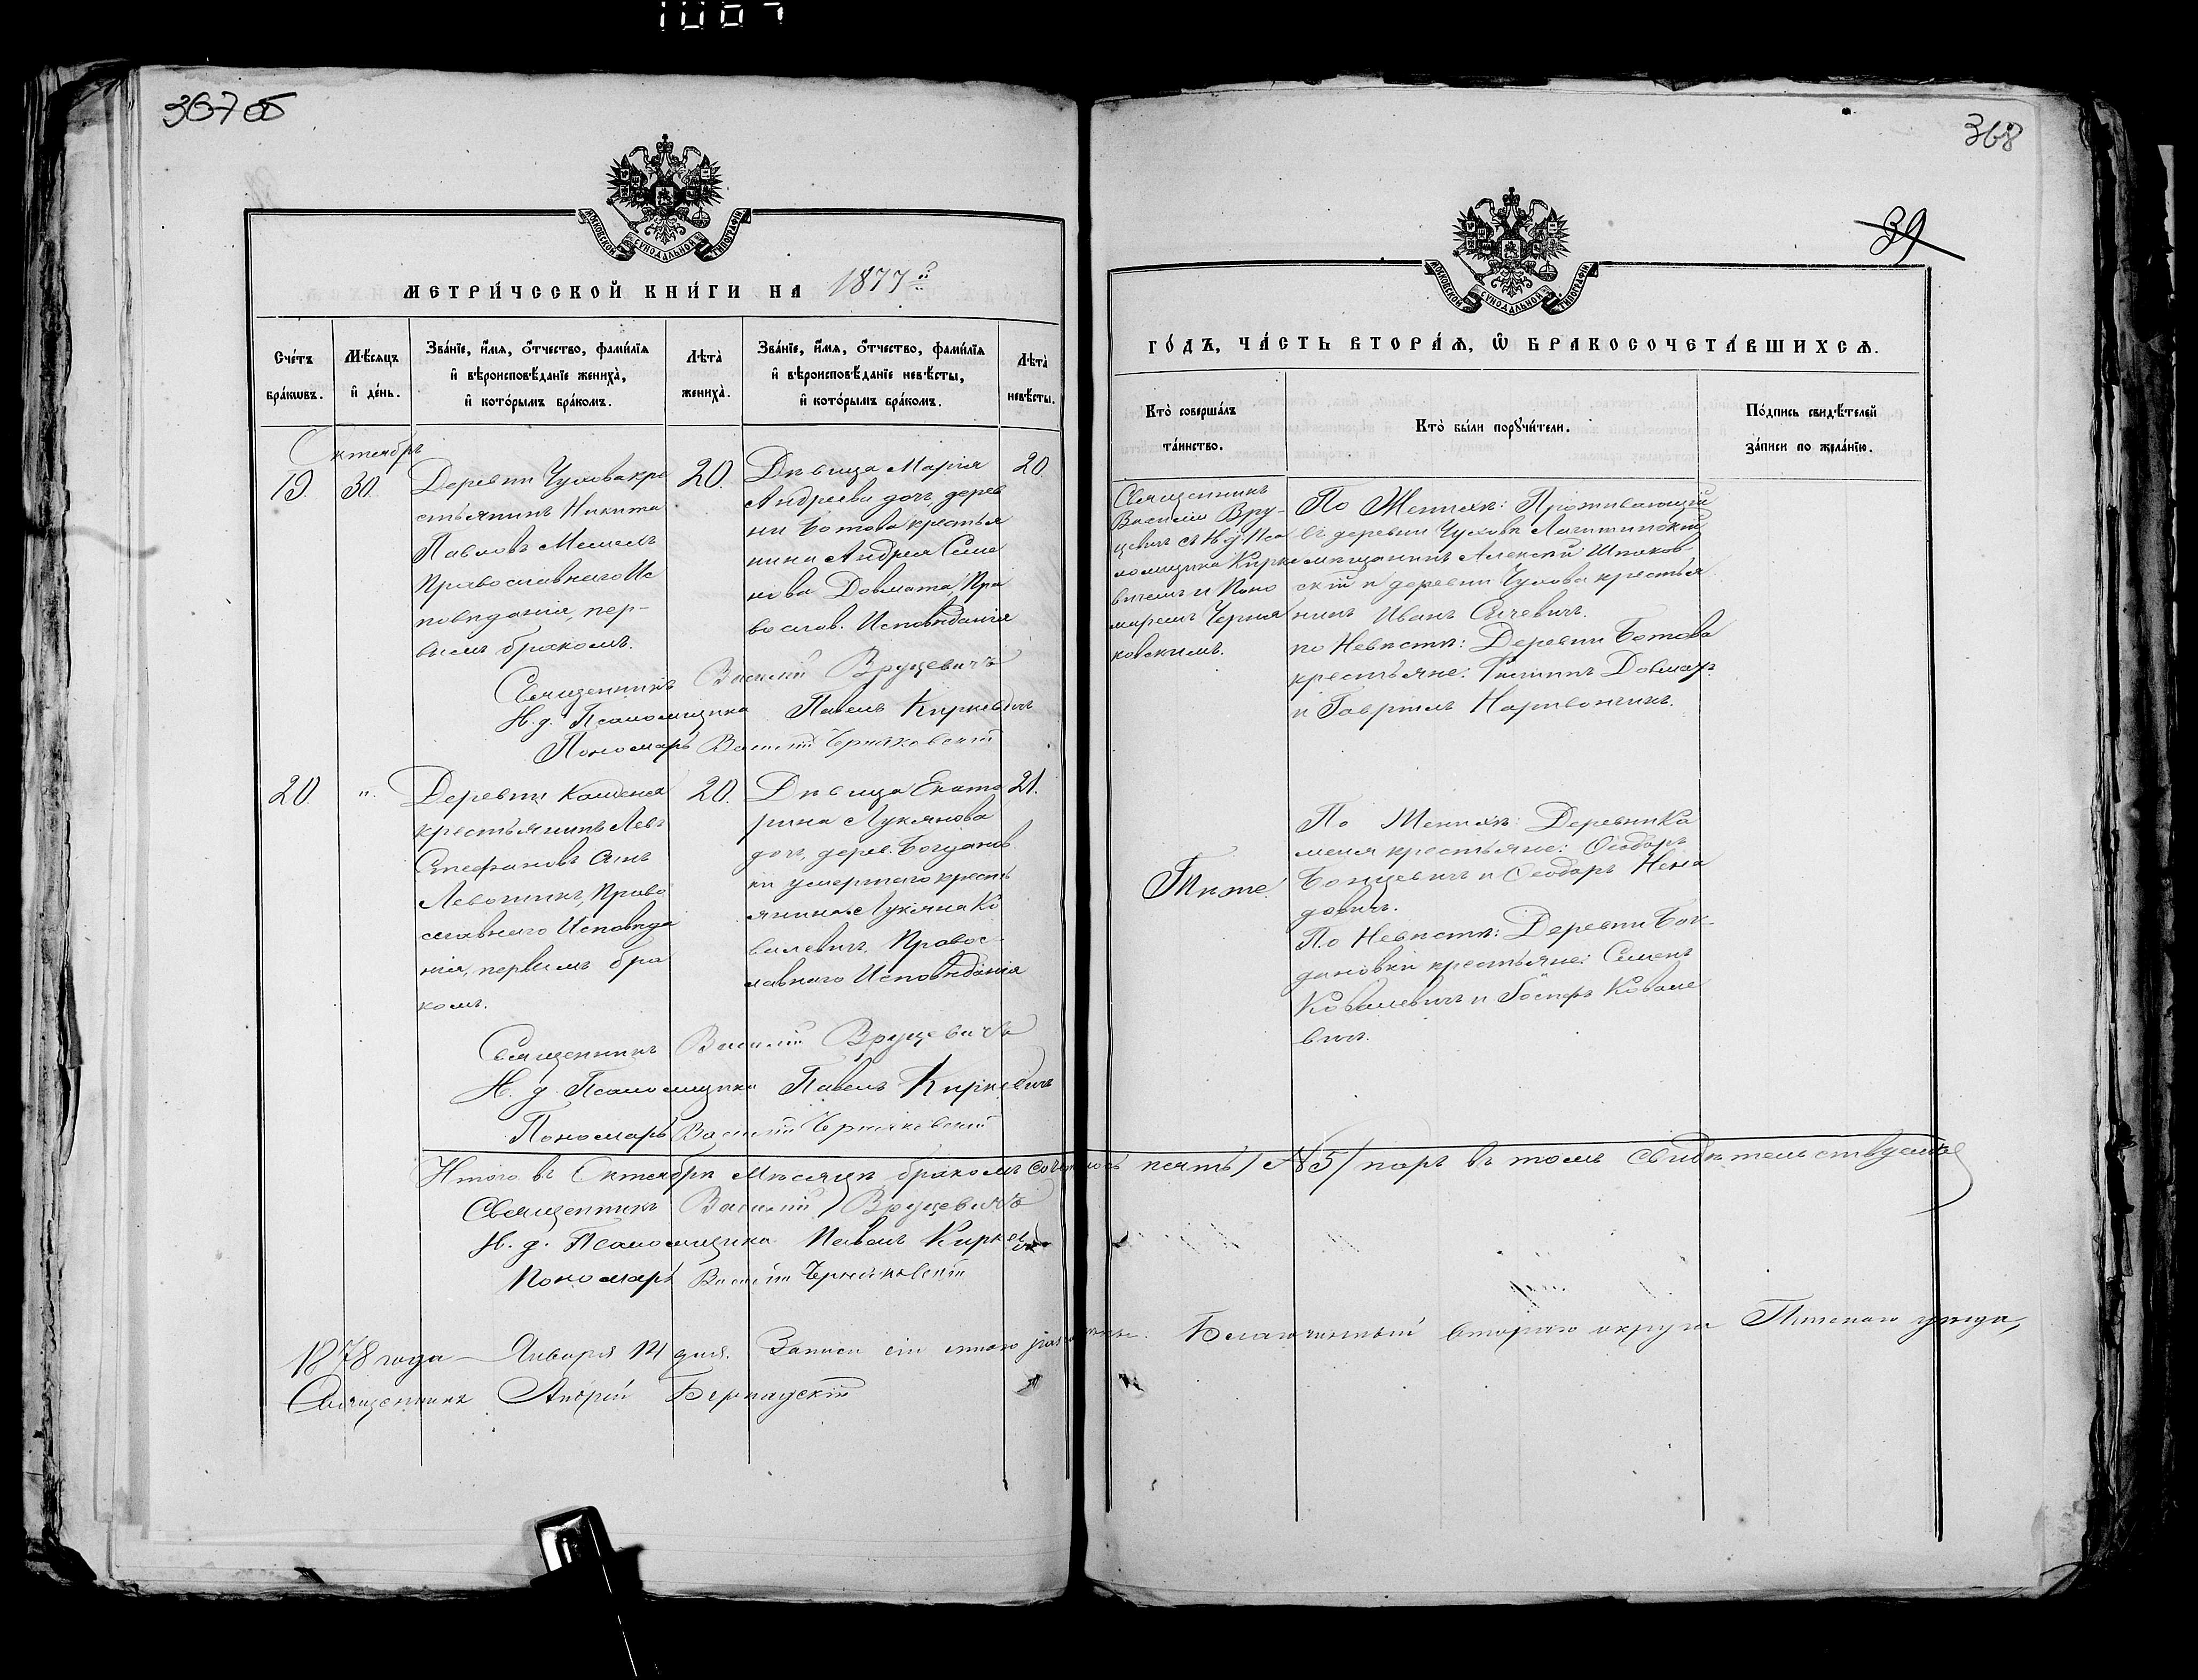 367 об
МОСКОВСКОЙ СѴНОДАЛЬНОЙ ТИПОГРАФІИ
МЕТРИ́ЧЕСКОЙ КНИ́ГИ НА 1877 г.
Сче́тъ бра́кωвъ.
Мѣ́сяцъ и҆ де́нь.
Зва́нїе, и҆́мѧ, ѻ҆́тчество, фами́лїѧ
и҆ вѣроисповѣ́данїе жениха̀,
и҆ кото́рымъ бра́комъ.
Лѣта̀ жениха̀.
Зва́нїе, и҆́мѧ, ѻ҆́тчество, фами́лїѧ
и҆ вѣроисповѣ́данїе невѣ́сты,
и҆ кото́рымъ бра́комъ.
Лѣта̀ невѣ́сты.
Октябрь
19.
30.
Деревни Чухова кре
стьянинъ Никита
Павловъ Мешель
Православнаго Ис
повѣданія, пер-
вымъ бракомъ.
20.
Дѣвица Марія
Андреева дочь, дерев
ни Ботова крестья
нина Андрея Семе
нова Довмата, Пра
вослав. Исповѣданія
20
Священникъ Василій Вруцевичъ
И. д. Псаломщика Павелъ Киркевичъ
Пономарь Василій Черняковскій
20.
"
Деревни Каменя
крестьянинъ Левъ
Стефановъ сынъ
Левошикъ, Право
славнаго Исповѣда
нія, первымъ бра
комъ.
20.
Дѣвица Екате
рина Лукянова
дочь, дерев. Богданов
ки умершаго кресть
янина Лукяна Ко
валевича, Правос-
лавнаго Исповѣданія
21.
Священникъ Василій Вруцевичъ
И. д. Псаломщика Павелъ Киркевичъ
Пономарь Василій Черняковскій
Итого въ Октябрѣ Мѣсяцѣ бракомъ сочеталось пять /№5/ паръ въ томъ свидѣтельствуемъ
Священникъ Василій Вруцевичъ
И. д. Псаломщика Павелъ Киркевичъ
Пономарь Василій Черняковскій
1878 года Января 14 дня. Записи сіи мною Благочинный втораго округа Пинскаго уѣзда,
Священникъ Андрей Бернадскій
368
39
МОСКОВСКОЙ СѴНОДАЛЬНОЙ ТИПОГРАФІИ
ГО́ДЪ, ЧА́СТЬ ВТОРА́Ѧ, Ѡ҆ БРАКОСОЧЕТА́ВШИХСѦ.
Кто̀ соверша́лъ
та́инство.
Кто̀ бы́ли порꙋчи́тели.
По́дпись свидѣ́телей
за́писи по жела́нїю.
Священникъ
Василій Вру-
цевичъ съ И. д. Пса
ломщика Кирке
вичемъ и Поно
маремъ Черня
ковскимъ.
По Женихѣ: Проживающій
въ деревни Чуховѣ Логишинскій
мѣщанинъ Алексѣй Шпаков-
скій и деревни Чухова крестья
нинъ Иванъ Сачевичъ.
по Невѣстѣ: Деревни Ботова
крестьяне: Филипъ Довматъ
и Гавріилъ Наривончикъ.
Тѣ же.
По Женихѣ: Деревни Ка
меня крестьяне: Ѳеодоръ
Бонцевичъ и Ѳеодоръ Нена
довичъ.
По Невѣстѣ: Деревни Бог-
дановки крестьяне: Семенъ
Ковалевичъ и Іосифъ Ковале
вичъ.